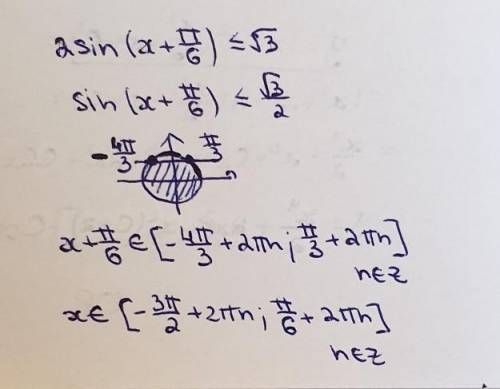 2sin(x+π/6) ≤ √3
sin(x+π/6) ≤ √3/2
-4π/3 π/3
x+π/6 ∈ [-4π/3+2πn; π/3+2πn]
n∈Z
x∈ [-3π/2+2πn; π/6+2πn]
n∈Z